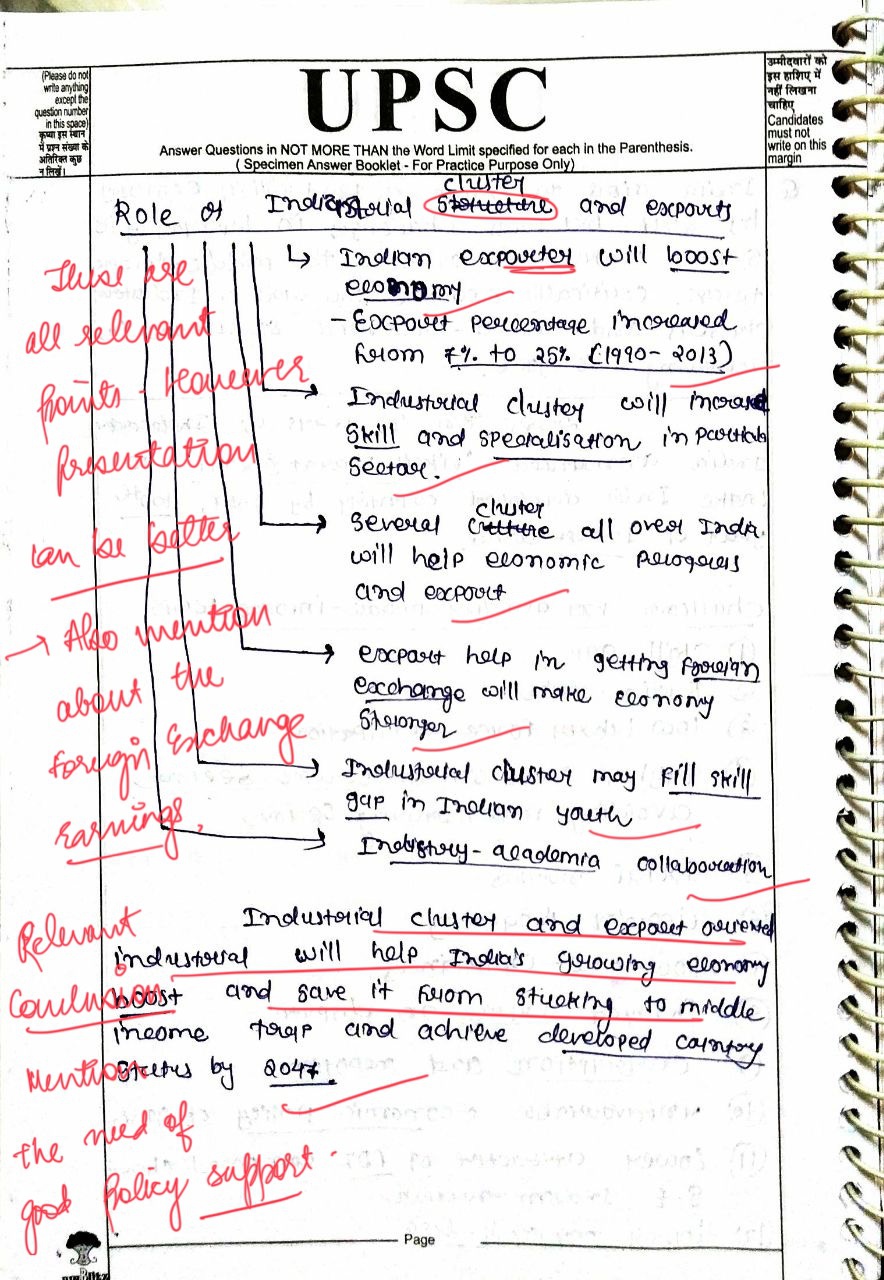 (Please do not
write anything
except the
question number
in this space)
कृपया इस स्थान
में प्रश्न संख्या के
अतिरिक्त कुछ
न लिखें।
UPSC
Answer Questions in NOT MORE THAN the Word Limit specified for each in the Parenthesis.
( Specimen Answer Booklet - For Practice Purpose Only)
उम्मीदवारों को
इस हाशिए में
नहीं लिखना
चाहिए
Candidates
must not
write on this
margin
cluster
Role of Industorial structure and exports
Indian exporter will boost
economy
- Export percentage increased
from 7% to 25% (1990-2013)
Industorial cluster will increase
skill and specialisation in particular
sector.
cluster
Several culture all over India
will help economic progress
and export
export help in getting foreign
exchange will make economy
stronger
Industorial cluster may fill skill
gap in Indian youth
Industry-academia collaboration
Industorial cluster and export oriented
industorial will help India's growing economy
boost and save it from stucking to middle
income trap and achieve developed country
status by 2047.
These are
all relevant
points. However
Presentation
can be better
→ Also mention
about the
foreign Exchange
Earnings.
Relevant
Conclusion
Mention
the need of
good policy support.
Page